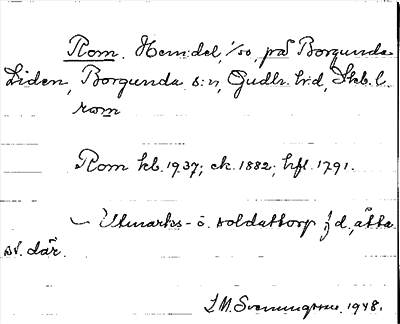 Rom. Hemdel, 1/50, på Borgunda
Liden, Borgunda s:n, Gudh. h:d, Skb. l.
rom
Rom kb. 1937; ek. 1882; hfl. 1791.
Utmarks- o. soldattorp f.d., åtta
st. där.
I. M. Svenungsson. 1948.